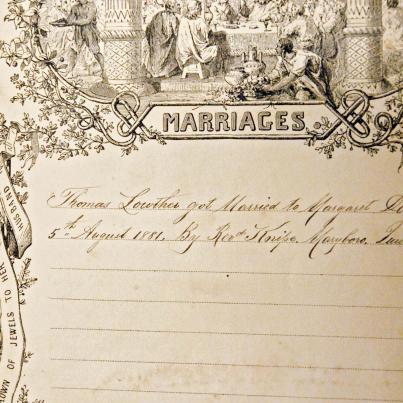 MARRIAGES.
Thomas Lowther got Married to Margaret
5th August 1881. By Revd Knipe, Maryboro,
HUSBAND
CROWN OF JEWELS TO HER